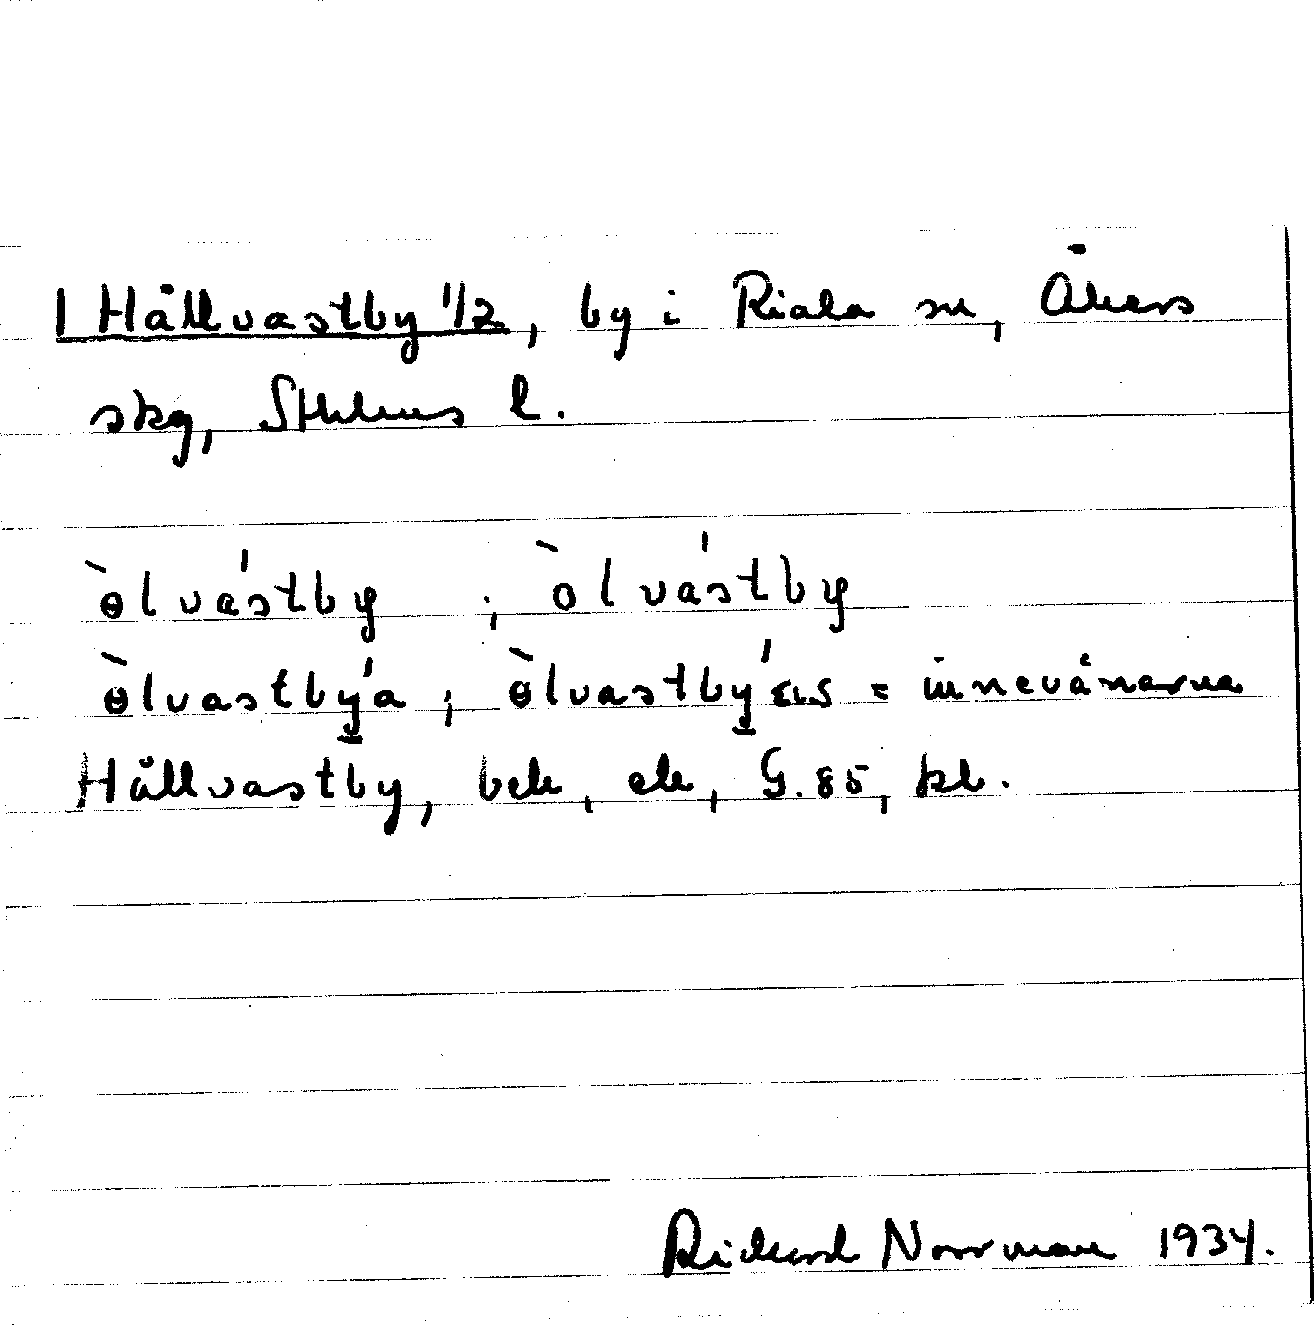 1 Hållvastby 1/2, by i Riala sn, Åkers
skg, Sthlms l.
ɵ̀lvástby ; òlvástby
ɵ̀lvastbýa ; ɵ̀lvastbýɛɳs = innevånarna
Hållvastby, bek, ek, G. 85, kb.
Rickard Norrman 1934.